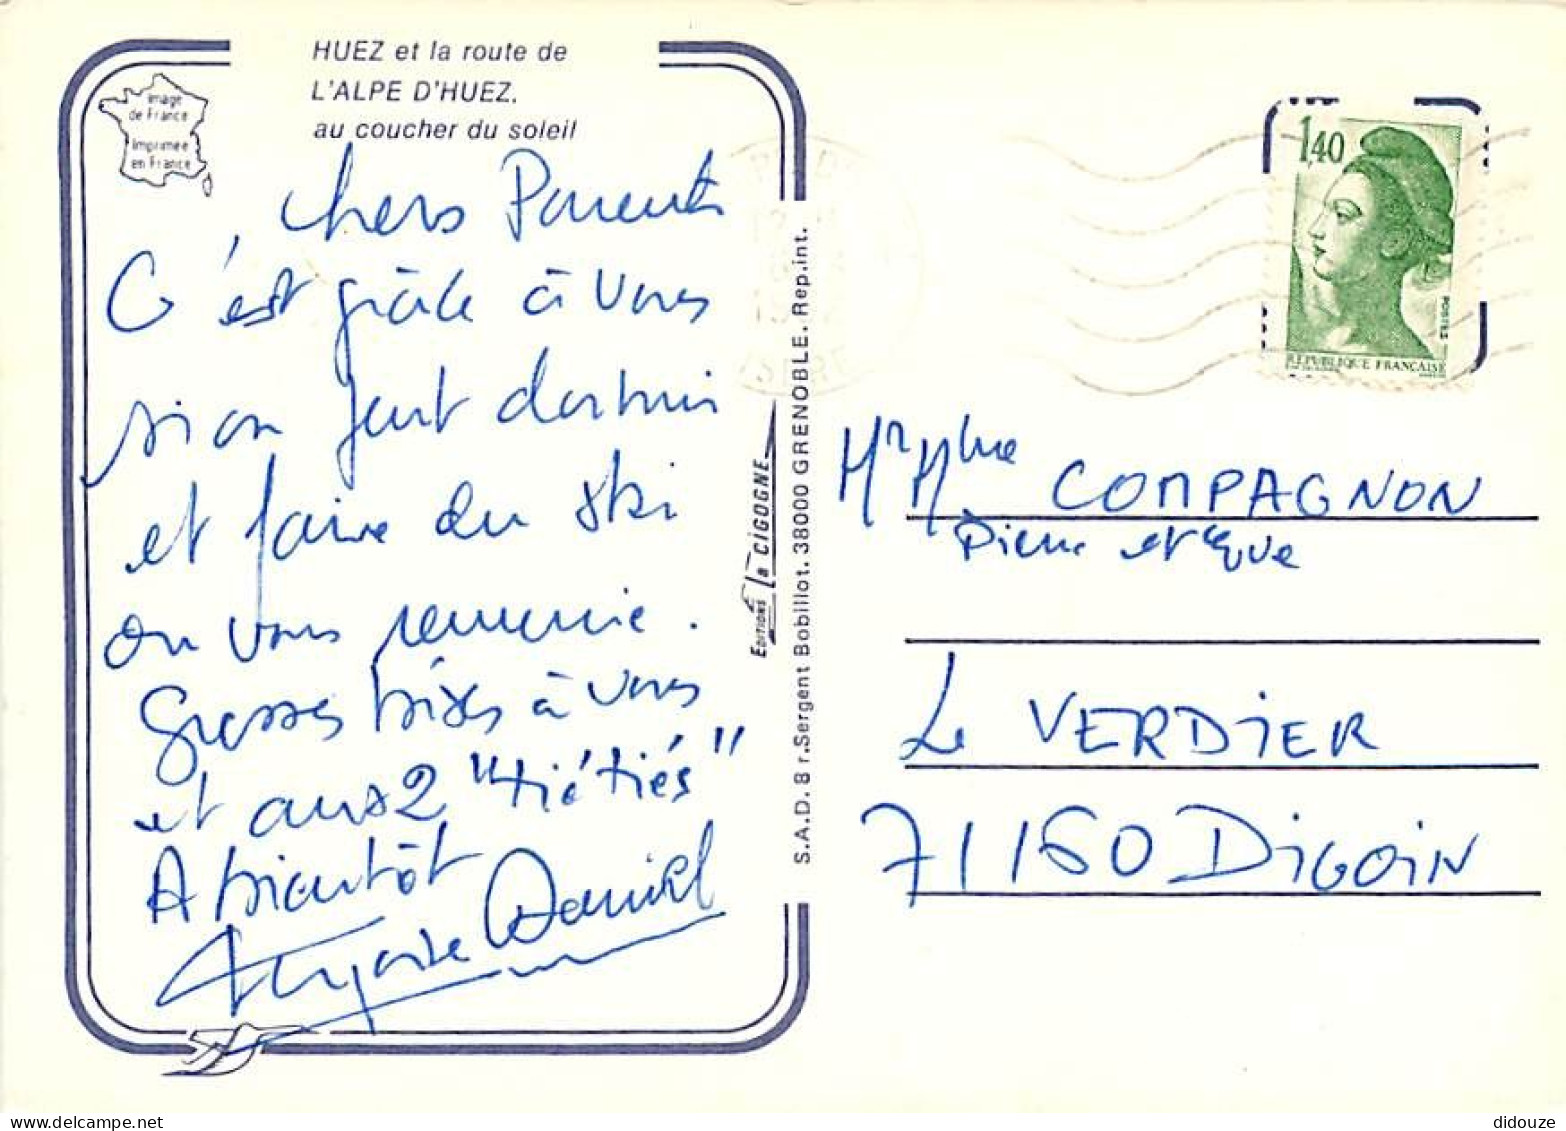 HUEZ et la route de
L'ALPE D'HUEZ,
au coucher du soleil
Image
de France
Imprimée
en France
Chers Parents
C'est grâce à vous
si on peut dormir
et faire du ski
on vous remercie.
Grosses bises à vous
et aux 2 "tiétiés"
A bientôt
Daniel
EDITIONS la CIGOGNE
S.A.D. 8 r. Sergent Bobillot. 38000 GRENOBLE. Rep.int.
1,40
POSTES
REPUBLIQUE FRANÇAISE
Mr Mme COMPAGNON
Pierre et Eve
Le VERDIER
71160 DIGOIN
didouze